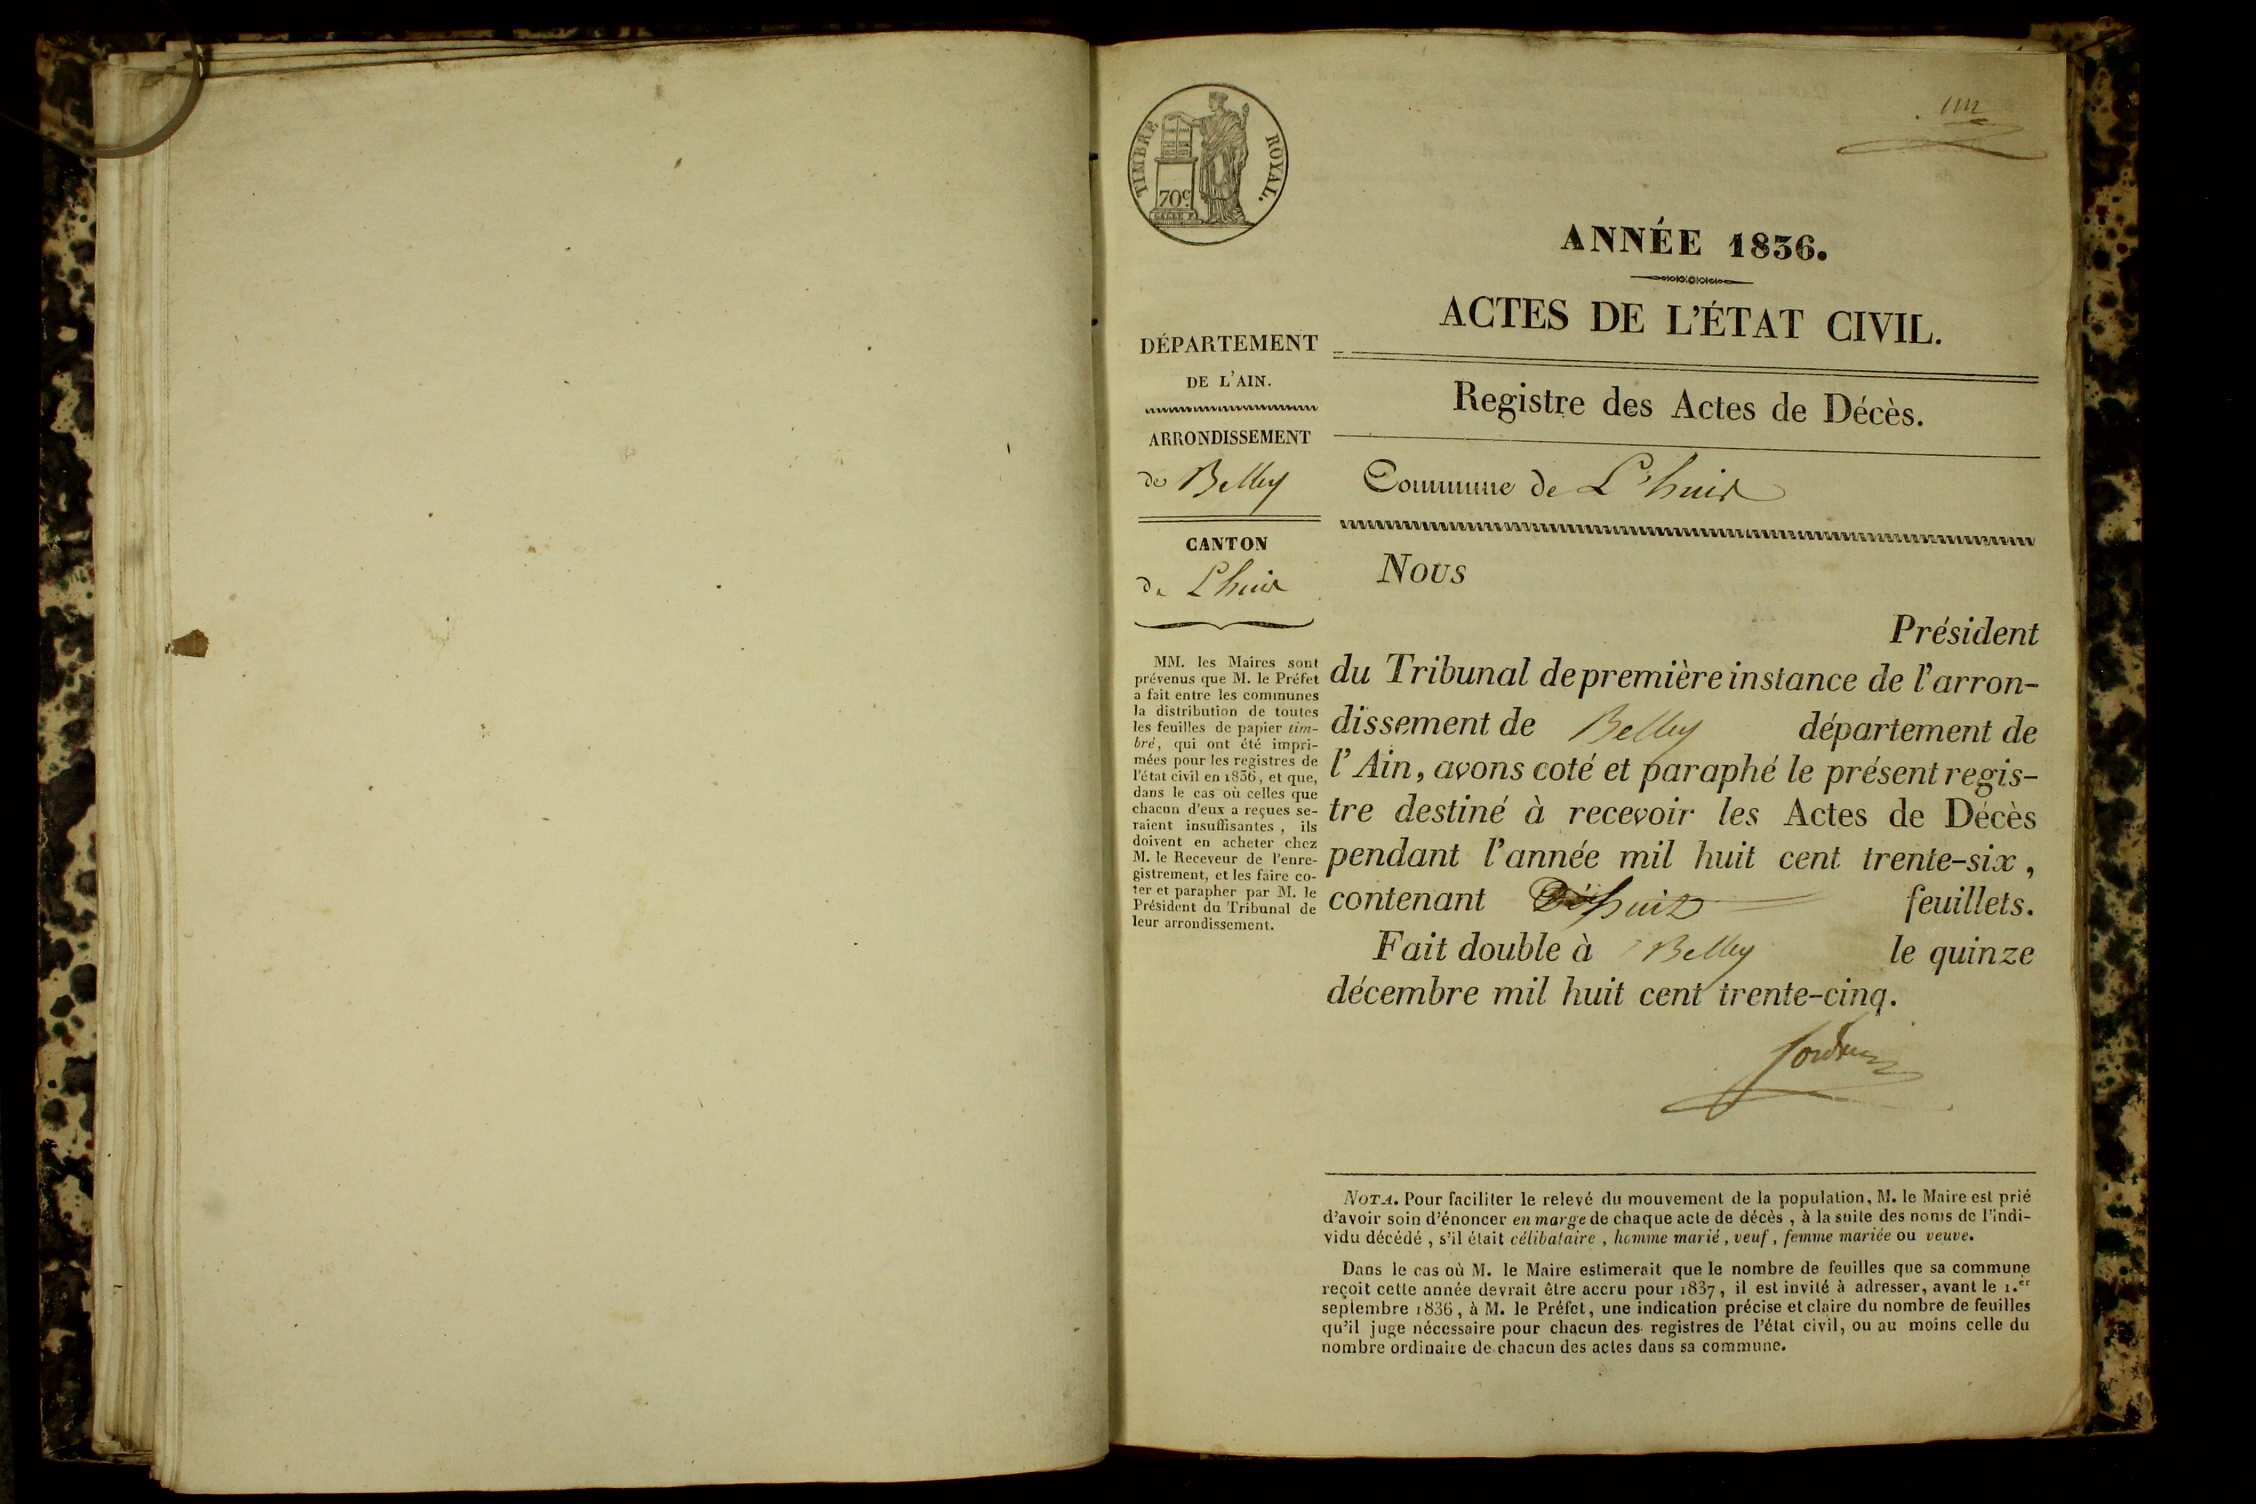 TIMBRE ROYAL.
70c.
ANNÉE 1836.
ACTES DE L'ÉTAT CIVIL.
Registre des Actes de Décès.
Commune de L'huis
DÉPARTEMENT
DE L'AIN.
ARRONDISSEMENT
de Belley
CANTON
de Lhuis
MM. les Maires sont
prévenus que M. le Préfet
a fait entre les communes
la distribution de toutes
les feuilles de papier tim-
bré, qui ont été impri-
mées pour les registres de
l'état civil en 1836, et que,
dans le cas où celles que
chacun d'eux a reçues se-
raient insuffisantes, ils
doivent en acheter chez
M. le Receveur de l'enre-
gistrement, et les faire co-
ter et parapher par M. le
Président du Tribunal de
leur arrondissement.
Nous
Président
du Tribunal de première instance de l'arron-
dissement de Belley département de
l'Ain, avons coté et paraphé le présent regis-
tre destiné à recevoir les Actes de Décès
pendant l'année mil huit cent trente-six,
contenant huit feuillets.
Fait double à Belley le quinze
décembre mil huit cent trente-cinq.
NOTA. Pour faciliter le relevé du mouvement de la population, M. le Maire est prié
d'avoir soin d'énoncer en marge de chaque acte de décès, à la suite des noms de l'indi-
vidu décédé, s'il était célibataire, homme marié, veuf, femme mariée ou veuve.
Dans le cas où M. le Maire estimerait que le nombre de feuilles que sa commune
reçoit cette année devrait être accru pour 1837, il est invité à adresser, avant le 1.er
septembre 1836, à M. le Préfet, une indication précise et claire du nombre de feuilles
qu'il juge nécessaire pour chacun des registres de l'état civil, ou au moins celle du
nombre ordinaire de chacun des actes dans sa commune.